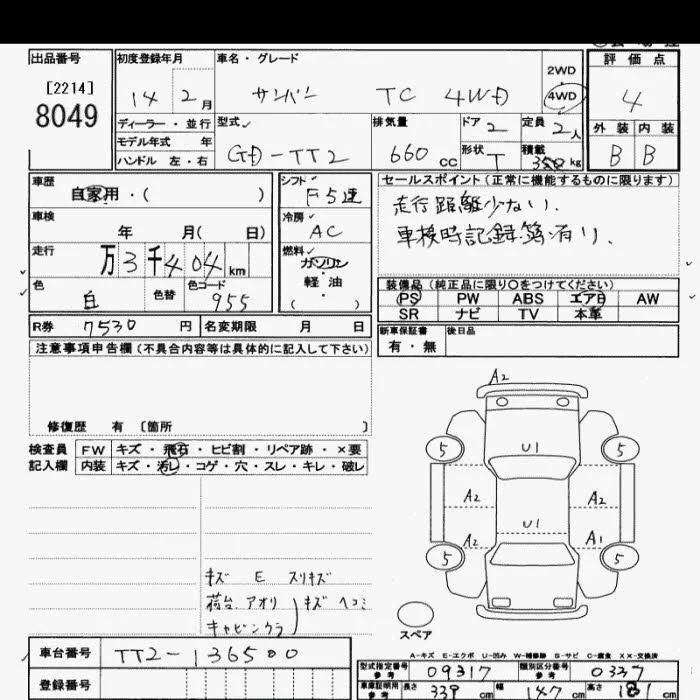 出品番号
[2214]
8049
初度登録年月
14 2月
ディーラー・並行
モデル年式 年
ハンドル 左・右
車名・グレード
サンバー TC 4WD
2WD
4WD
型式
GD-TT2
排気量
660 cc
ドア 2
形状 T
定員 2人
積載 350 kg
評価点
4
外装 内装
B B
車歴
自家用・( )
車検
年 月( 日)
走行
万3千404km
色
白
色替
色コード
955
シフト
F5速
冷房
AC
燃料
ガソリン
軽油
( )
セールスポイント(正常に機能するものに限ります)
走行距離少ない、
車検時記録簿有り、
装備品(純正品に限り○をつけてください)
PS PW ABS エアB AW
SR ナビ TV 本革
R券 7530 円 名変期限 月 日
新車保証書
有・無
後日品
注意事項申告欄(不具合内容等は具体的に記入して下さい)
修復歴 有 [箇所 ]
検査員 FW キズ・飛石・ヒビ割・リペア跡・×要
記入欄 内装 キズ・汚レ・コゲ・穴・スレ・キレ・破レ
キズ E スリキズ
荷台、アオリ
キャビンウラ
キズ ヘコミ
A2
5 U1 5
A2 A2
U1
A2 A1
5 5
スペア
A-キズ E-エクボ U-凹み W-補修跡 S-サビ C-腐食 XX-交換済
車台番号 TT2-136500
登録番号
型式指定番号 参考 09317 類別区分番号 参考 0337
車庫証明用 参考 長さ 339 cm 幅 147 cm 高さ 181 cm